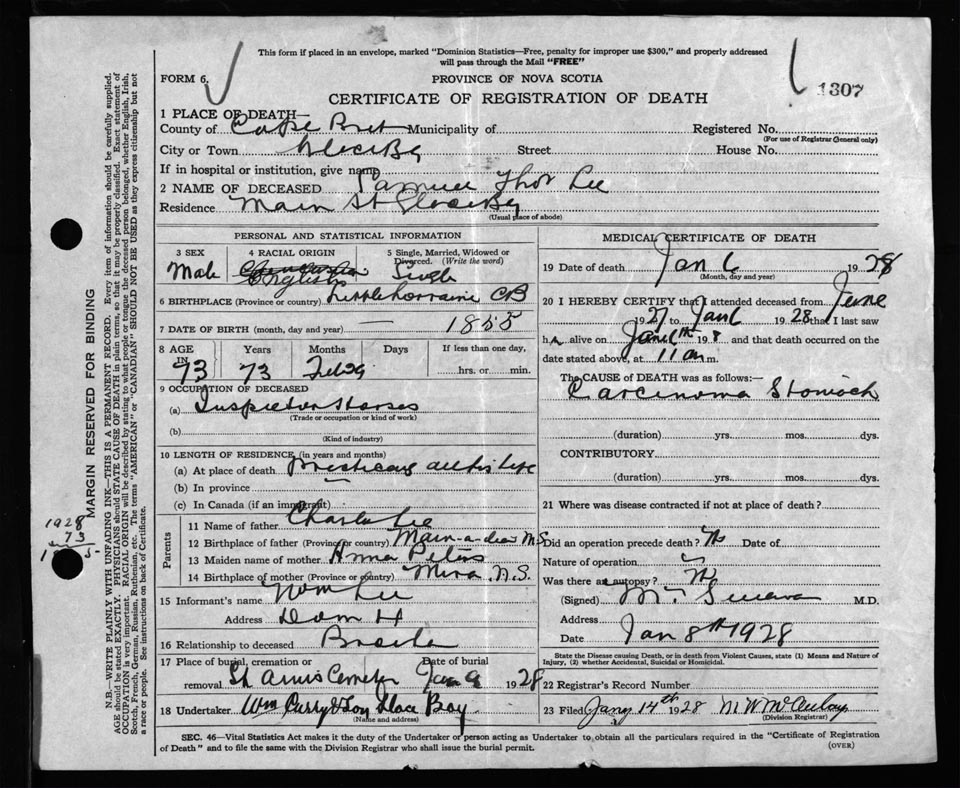 This form if placed in an envelope, marked "Dominion Statistics—Free, penalty for improper use $300," and properly addressed
will pass through the Mail "FREE"
FORM 6.
PROVINCE OF NOVA SCOTIA
1307
CERTIFICATE OF REGISTRATION OF DEATH
1 PLACE OF DEATH—
County of Cape Bret Municipality of Registered No.
(For use of Registrar General only)
City or Town Glace Bay Street House No.
If in hospital or institution, give name
2 NAME OF DECEASED Samuel Thos Lee
Residence Main St Glace Bay
(Usual place of abode)
PERSONAL AND STATISTICAL INFORMATION
3 SEX
Male
4 RACIAL ORIGIN
English
5 Single, Married, Widowed or
Divorced. (Write the word)
Single
6 BIRTHPLACE (Province or country) Little Lorraine CB
7 DATE OF BIRTH (month, day and year) — 1855
8 AGE Years Months Days If less than one day,
IN
73 73 hrs. or min.
9 OCCUPATION OF DECEASED
(a) Inspector Horses
(Trade or occupation or kind of work)
(b)
(Kind of industry)
10 LENGTH OF RESIDENCE (in years and months)
(a) At place of death Practically all his life
(b) In province
(c) In Canada (if an immigrant)
Parents
11 Name of father Charles Lee
12 Birthplace of father (Province or country) Main-a-dieu N.S
13 Maiden name of mother Anna
14 Birthplace of mother (Province or country) Mira. N.S.
15 Informant's name Wm Lee
Address Dom 4
16 Relationship to deceased Brother
17 Place of burial, cremation or Date of burial
removal St Anns Cemetery Jan 9 1928
18 Undertaker Wm Curry & Son Glace Bay
(Name and address)
MEDICAL CERTIFICATE OF DEATH
19 Date of death Jan 6 1928
(Month, day and year)
20 I HEREBY CERTIFY that I attended deceased from June
1927 to Jan 6 1928 that I last saw
h alive on Jan 6th 1928 and that death occurred on the
date stated above, at 11 a m.
The CAUSE OF DEATH was as follows:—
Carcinoma Stomach
(duration) yrs. mos. dys.
CONTRIBUTORY
(duration) yrs. mos. dys.
21 Where was disease contracted if not at place of death?
Did an operation precede death? No Date of
Nature of operation
Was there an autopsy? No
(Signed) M.D.
Address
Date Jan 8th 1928
State the Disease causing Death, or in death from Violent Causes, state (1) Means and Nature of
Injury, (2) whether Accidental, Suicidal or Homicidal.
22 Registrar's Record Number
23 Filed Jany 14th 1928 M W McAulay
(Division Registrar)
SEC. 46—Vital Statistics Act makes it the duty of the Undertaker or person acting as Undertaker to obtain all the particulars required in the "Certificate of Registration
of Death" and to file the same with the Division Registrar who shall issue the burial permit.
(OVER)
MARGIN RESERVED FOR BINDING
N.B.—WRITE PLAINLY WITH UNFADING INK—THIS IS A PERMANENT RECORD. Every item of information should be carefully supplied.
AGE should be stated EXACTLY. PHYSICIANS should STATE CAUSE OF DEATH in plain terms, so that it may be properly classified. Exact statement of
OCCUPATION is very important. RACIAL ORIGIN will be described by stating to what people or tongue the deceased person belonged, whether English, Irish,
Scotch, French, German, Russian, Ruthenian, etc. The terms "AMERICAN" or "CANADIAN" SHOULD NOT BE USED as they express citizenship but not
a race or people. See instructions on back of Certificate.
1928
73